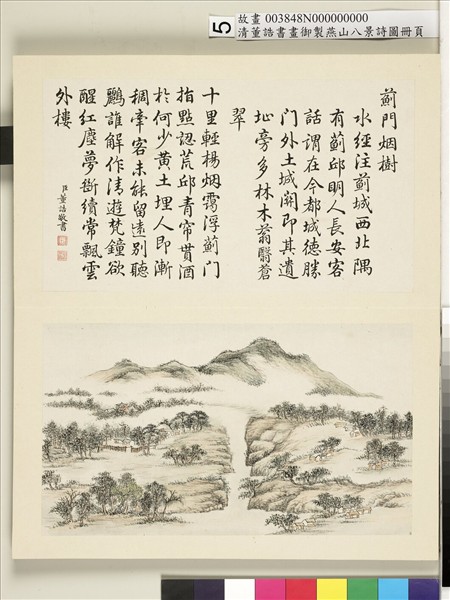 5
故畫 003848N000000000
清董誥書畫御製燕山八景詩圖冊頁
薊門烟樹
水經注薊城西北隅
有薊邱明人長安客
話謂在今都城德勝
門外土城關即其遺
址旁多林木蓊翳蒼
翠
十里輕楊烟靄浮薊门
指點認荒邱青帘貰酒
於何少黄土埋人即漸
稠牽客未能留遠别聽
鸝誰解作清遊梵鐘欲
醒紅塵夢斷續常飄雲
外樓
臣董誥敬書